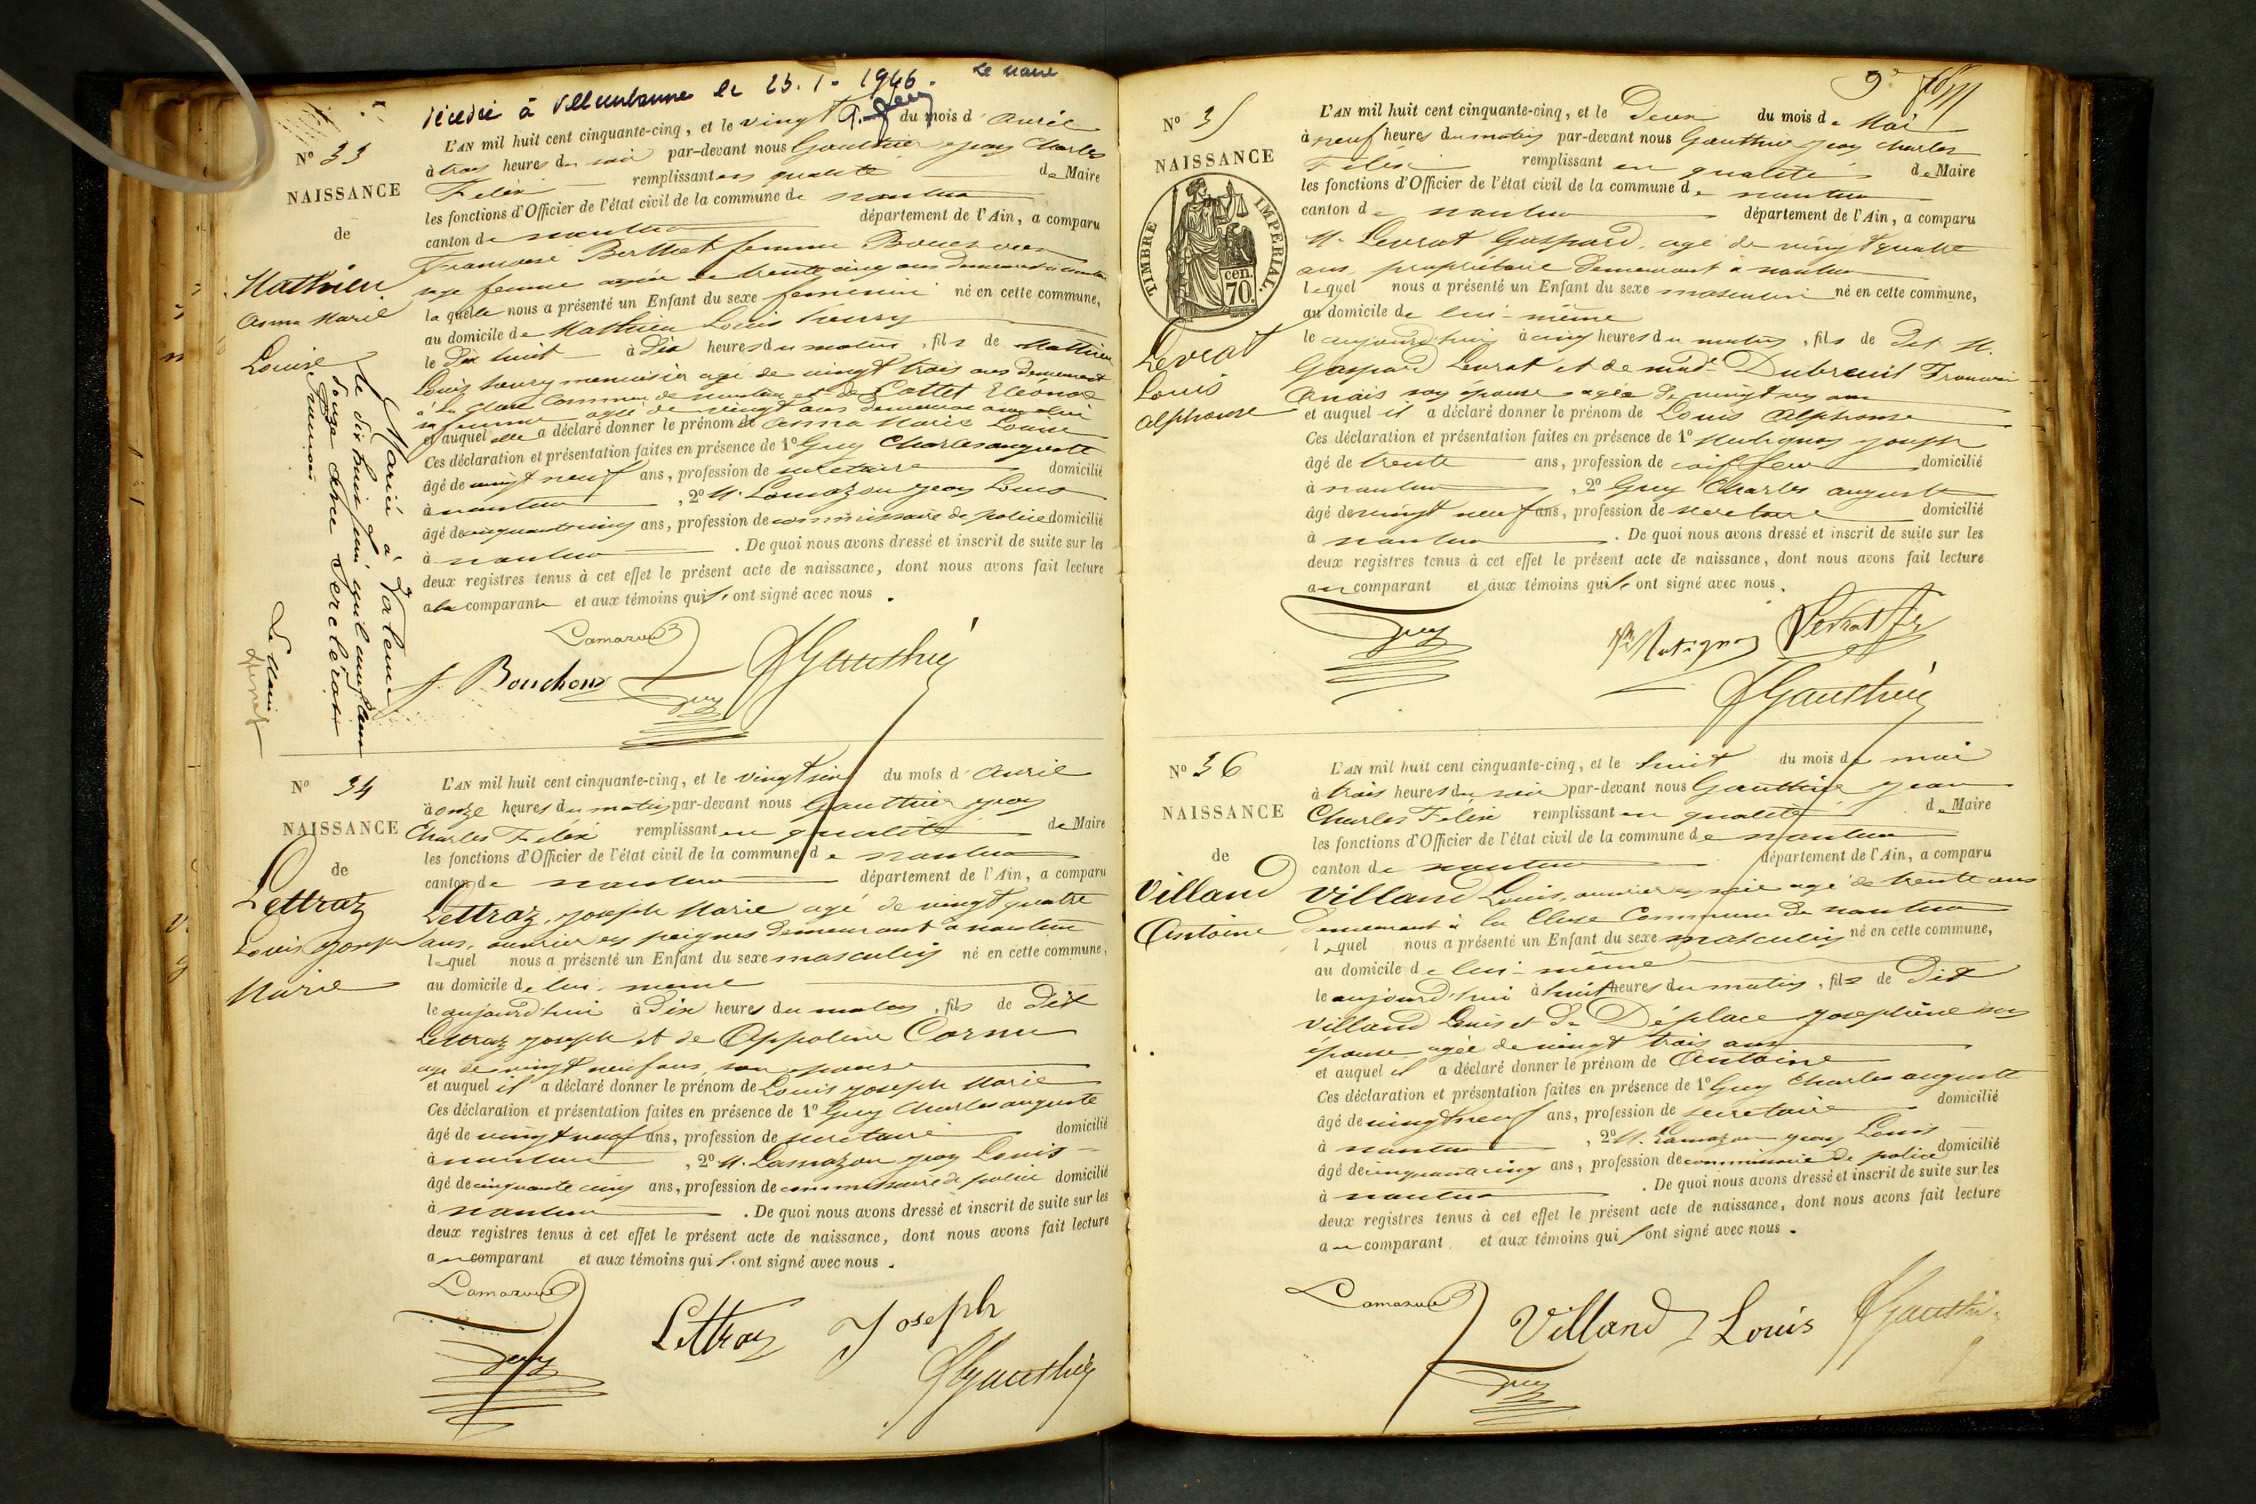 décédée à Villeurbanne le 23.1.1946. Le Maire
N° 33
NAISSANCE
de
Mathieu
Anna Marie
Louise
L'AN mil huit cent cinquante-cinq, et le vingt du mois d'Avril
à trois heures du soir par-devant nous Gauthier Jean Charles
Félix remplissant en qualité de Maire
les fonctions d'Officier de l'état civil de la commune de nantua
canton de nantua département de l'Ain, a comparu
Françoise Berthet femme
sage femme agée de trente cinq ans demeurant à nantua
laquelle nous a présenté un Enfant du sexe feminin né en cette commune,
au domicile de Mathieu Louis henry
le dix huit à dix heures du matin, fils de Mathieu
Louis henry menuisier agé de vingt trois ans demeurant
à la Cluse Commune de nantua et de Cottet Eléonore
sa femme agée de vingt ans demeurant avec lui
et auquel elle a déclaré donner le prénom de Anna Marie Louise
Ces déclaration et présentation faites en présence de 1° Guy Charles auguste
âgé de vingt neuf ans, profession de secretaire domicilié
à nantua, 2° M. Lamazou jean Louis
âgé de cinquante cinq ans, profession de commissaire de police domicilié
à nantua. De quoi nous avons dressé et inscrit de suite sur les
deux registres tenus à cet effet le présent acte de naissance, dont nous avons fait lecture
a la comparante et aux témoins qui l'ont signé avec nous.
Mariée à Valence
le dix huit
douze avec
Le Maire
Lamazou
f. Bouchoux
Guy
Gauthier
N° 34
NAISSANCE
de
Lettraz
Louis Joseph
Marie
L'AN mil huit cent cinquante-cinq, et le vingt six du mois d'Avril
à onze heures du matin par-devant nous Gauthier jean
Charles Félix remplissant en qualité de Maire
les fonctions d'Officier de l'état civil de la commune de nantua
canton de nantua département de l'Ain, a comparu
Lettraz, joseph Marie agé de vingt quatre
ans, ouvrier en peignes demeurant à nantua
lequel nous a présenté un Enfant du sexe masculin né en cette commune,
au domicile de lui-même
le aujourd'hui à dix heures du matin, fils de dit
Lettraz joseph et de Appoline Cornu
agé de vingt neuf ans, son epouse
et auquel il a déclaré donner le prénom de Louis joseph Marie
Ces déclaration et présentation faites en présence de 1° Guy Charles auguste
âgé de vingt neuf ans, profession de secretaire domicilié
à nantua, 2° M. Lamazou jean Louis
âgé de cinquante cinq ans, profession de commissaire de police domicilié
à nantua. De quoi nous avons dressé et inscrit de suite sur les
deux registres tenus à cet effet le présent acte de naissance, dont nous avons fait lecture
au comparant et aux témoins qui l'ont signé avec nous.
Lamazou
Guy
Lettraz Joseph
Gauthier
N° 35
NAISSANCE
TIMBRE IMPERIAL.
cen.
70.
Levrat
Louis
Alphonse
L'AN mil huit cent cinquante-cinq, et le Deux du mois de Mai
à neuf heures du matin par-devant nous Gauthier jean Charles
Félix remplissant en qualité de Maire
les fonctions d'Officier de l'état civil de la commune de nantua
canton de nantua département de l'Ain, a comparu
M. Levrat Gaspard, agé de vingt quatre
ans, propriétaire demeurant à nantua
lequel nous a présenté un Enfant du sexe masculin né en cette commune,
au domicile de lui-même
le aujourd'hui à cinq heures du matin, fils de dit M.
Gaspard Levrat et de mad. Dubreuil
Anais son épouse agée de vingt un ans
et auquel il a déclaré donner le prénom de Louis Alphonse
Ces déclaration et présentation faites en présence de 1° joseph
âgé de trente ans, profession de coiffeur domicilié
à nantua, 2° Guy Charles auguste
âgé de vingt neuf ans, profession de secretaire domicilié
à nantua. De quoi nous avons dressé et inscrit de suite sur les
deux registres tenus à cet effet le présent acte de naissance, dont nous avons fait lecture
au comparant et aux témoins qui l'ont signé avec nous.
Guy
Gauthier
N° 36
NAISSANCE
de
Villand
Antoine
L'AN mil huit cent cinquante-cinq, et le huit du mois de mai
à trois heures du soir par-devant nous Gauthier jean
Charles Félix remplissant en qualité de Maire
les fonctions d'Officier de l'état civil de la commune de nantua
canton de nantua département de l'Ain, a comparu
Villand Louis, ouvrier en soie agé de trente ans
demeurant à la Cluse Commune de nantua
lequel nous a présenté un Enfant du sexe masculin né en cette commune,
au domicile de lui-même
le aujourd'hui à huit heures du matin, fils de Dit
Villand Louis et de Déplace josephine son
épouse agée de vingt trois ans
et auquel il a déclaré donner le prénom de Antoine
Ces déclaration et présentation faites en présence de 1° Guy Charles auguste
âgé de vingt neuf ans, profession de secretaire domicilié
à nantua, 2° M. Lamazou jean Louis
âgé de cinquante cinq ans, profession de commissaire de police domicilié
à nantua. De quoi nous avons dressé et inscrit de suite sur les
deux registres tenus à cet effet le présent acte de naissance, dont nous avons fait lecture
au comparant et aux témoins qui l'ont signé avec nous.
Lamazou
Villand Louis
Gauthier
Guy